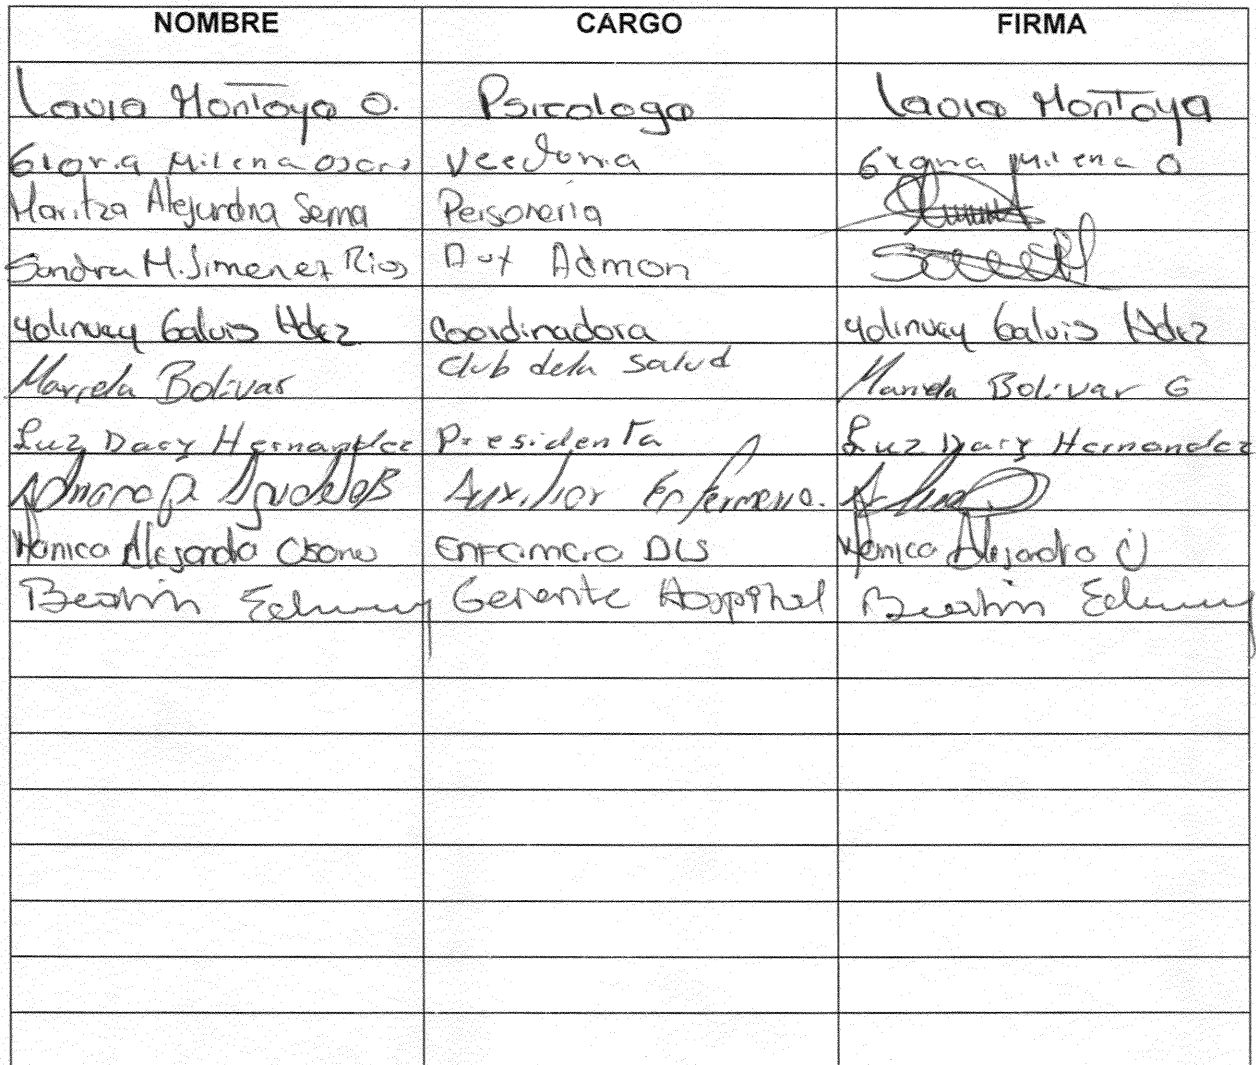 NOMBRE CARGO FIRMA
Laura Montoya O. Psicologa Laura Montoya
Gloria Milena Osorio Veeduria Gloria Milena O
Maritza Alejandra Serna Personeria
Sandra M. Jimenez Rios Aux Admon
Yolinvey Galvis Hdez Coordinadora Yolinvey Galvis Hdez
Mariela Bolivar Club de la salud Mariela Bolivar G
Luz Dary Hernandez Presidenta Luz Dary Hernandez
Adriana P. Agudelo B Auxiliar Enfermeria.
Monica Alejandra Osorio Enfermera DLS Monica Alejandra O
Beatriz Gerente Hospital Beatriz